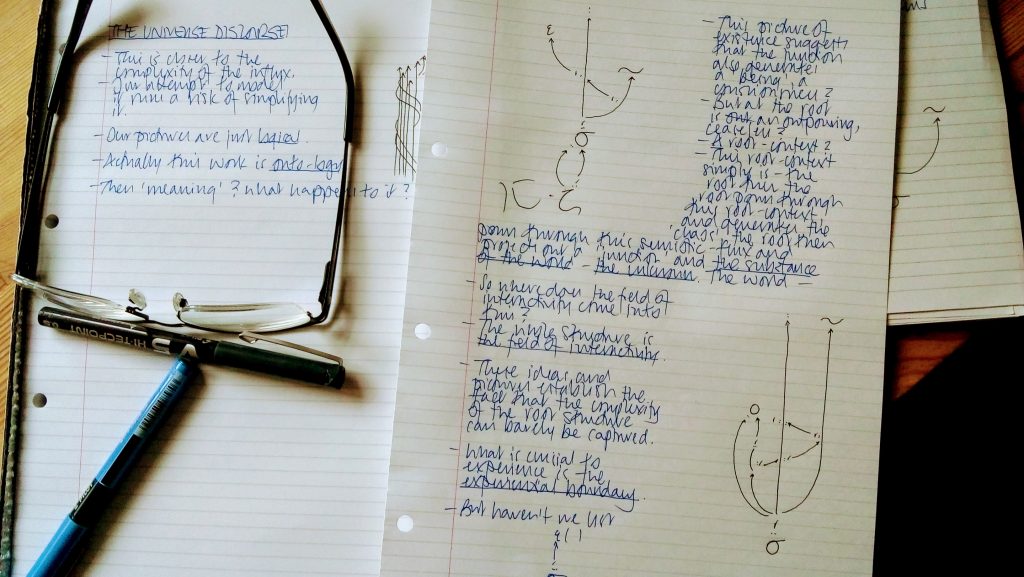 THE UNIVERSE DISCOURSE
- This is closer to the
complexity of the influx.
- Our attempt to model
it runs a risk of simplifying
it.
- Our pictures are just logical
- Actually this work is onto-logy
- Then 'meaning'? What happens to it?
HI-TECPOINT V5
- This picture of
existence suggests
that the junction
also generates
a being, a
consciousness?
- But at the root
is an outpouring,
ceaseless?
- A root-context?
- This root-context
simply is - the
root then the
root pours through
this root-context
and generates the
chaos, the root then
pours through this semiotic-flux and
projects out a junction and the substance
of the world - the unknown. The world -
- So where does the field of
interactivity come into
this?
- The whole structure is
the field of interactivity.
- These ideas and
pictures establish the
fact that the complexity
of the root structure
can barely be captured.
- What is crucial to
experience is the
experiential boundary.
- But haven't we
~
σ
~
~
O
σ